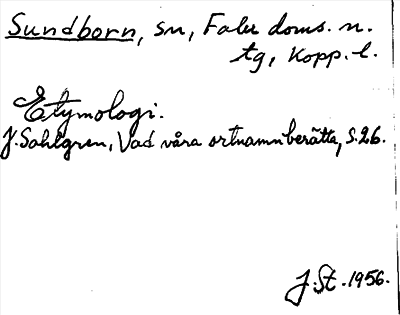 Sundborn, sn, Falu doms. n.
tg, Kopp. l.
Etymologi.
J. Sahlgren, Vad våra ortnamn berätta, S. 26.
J. St. 1956.